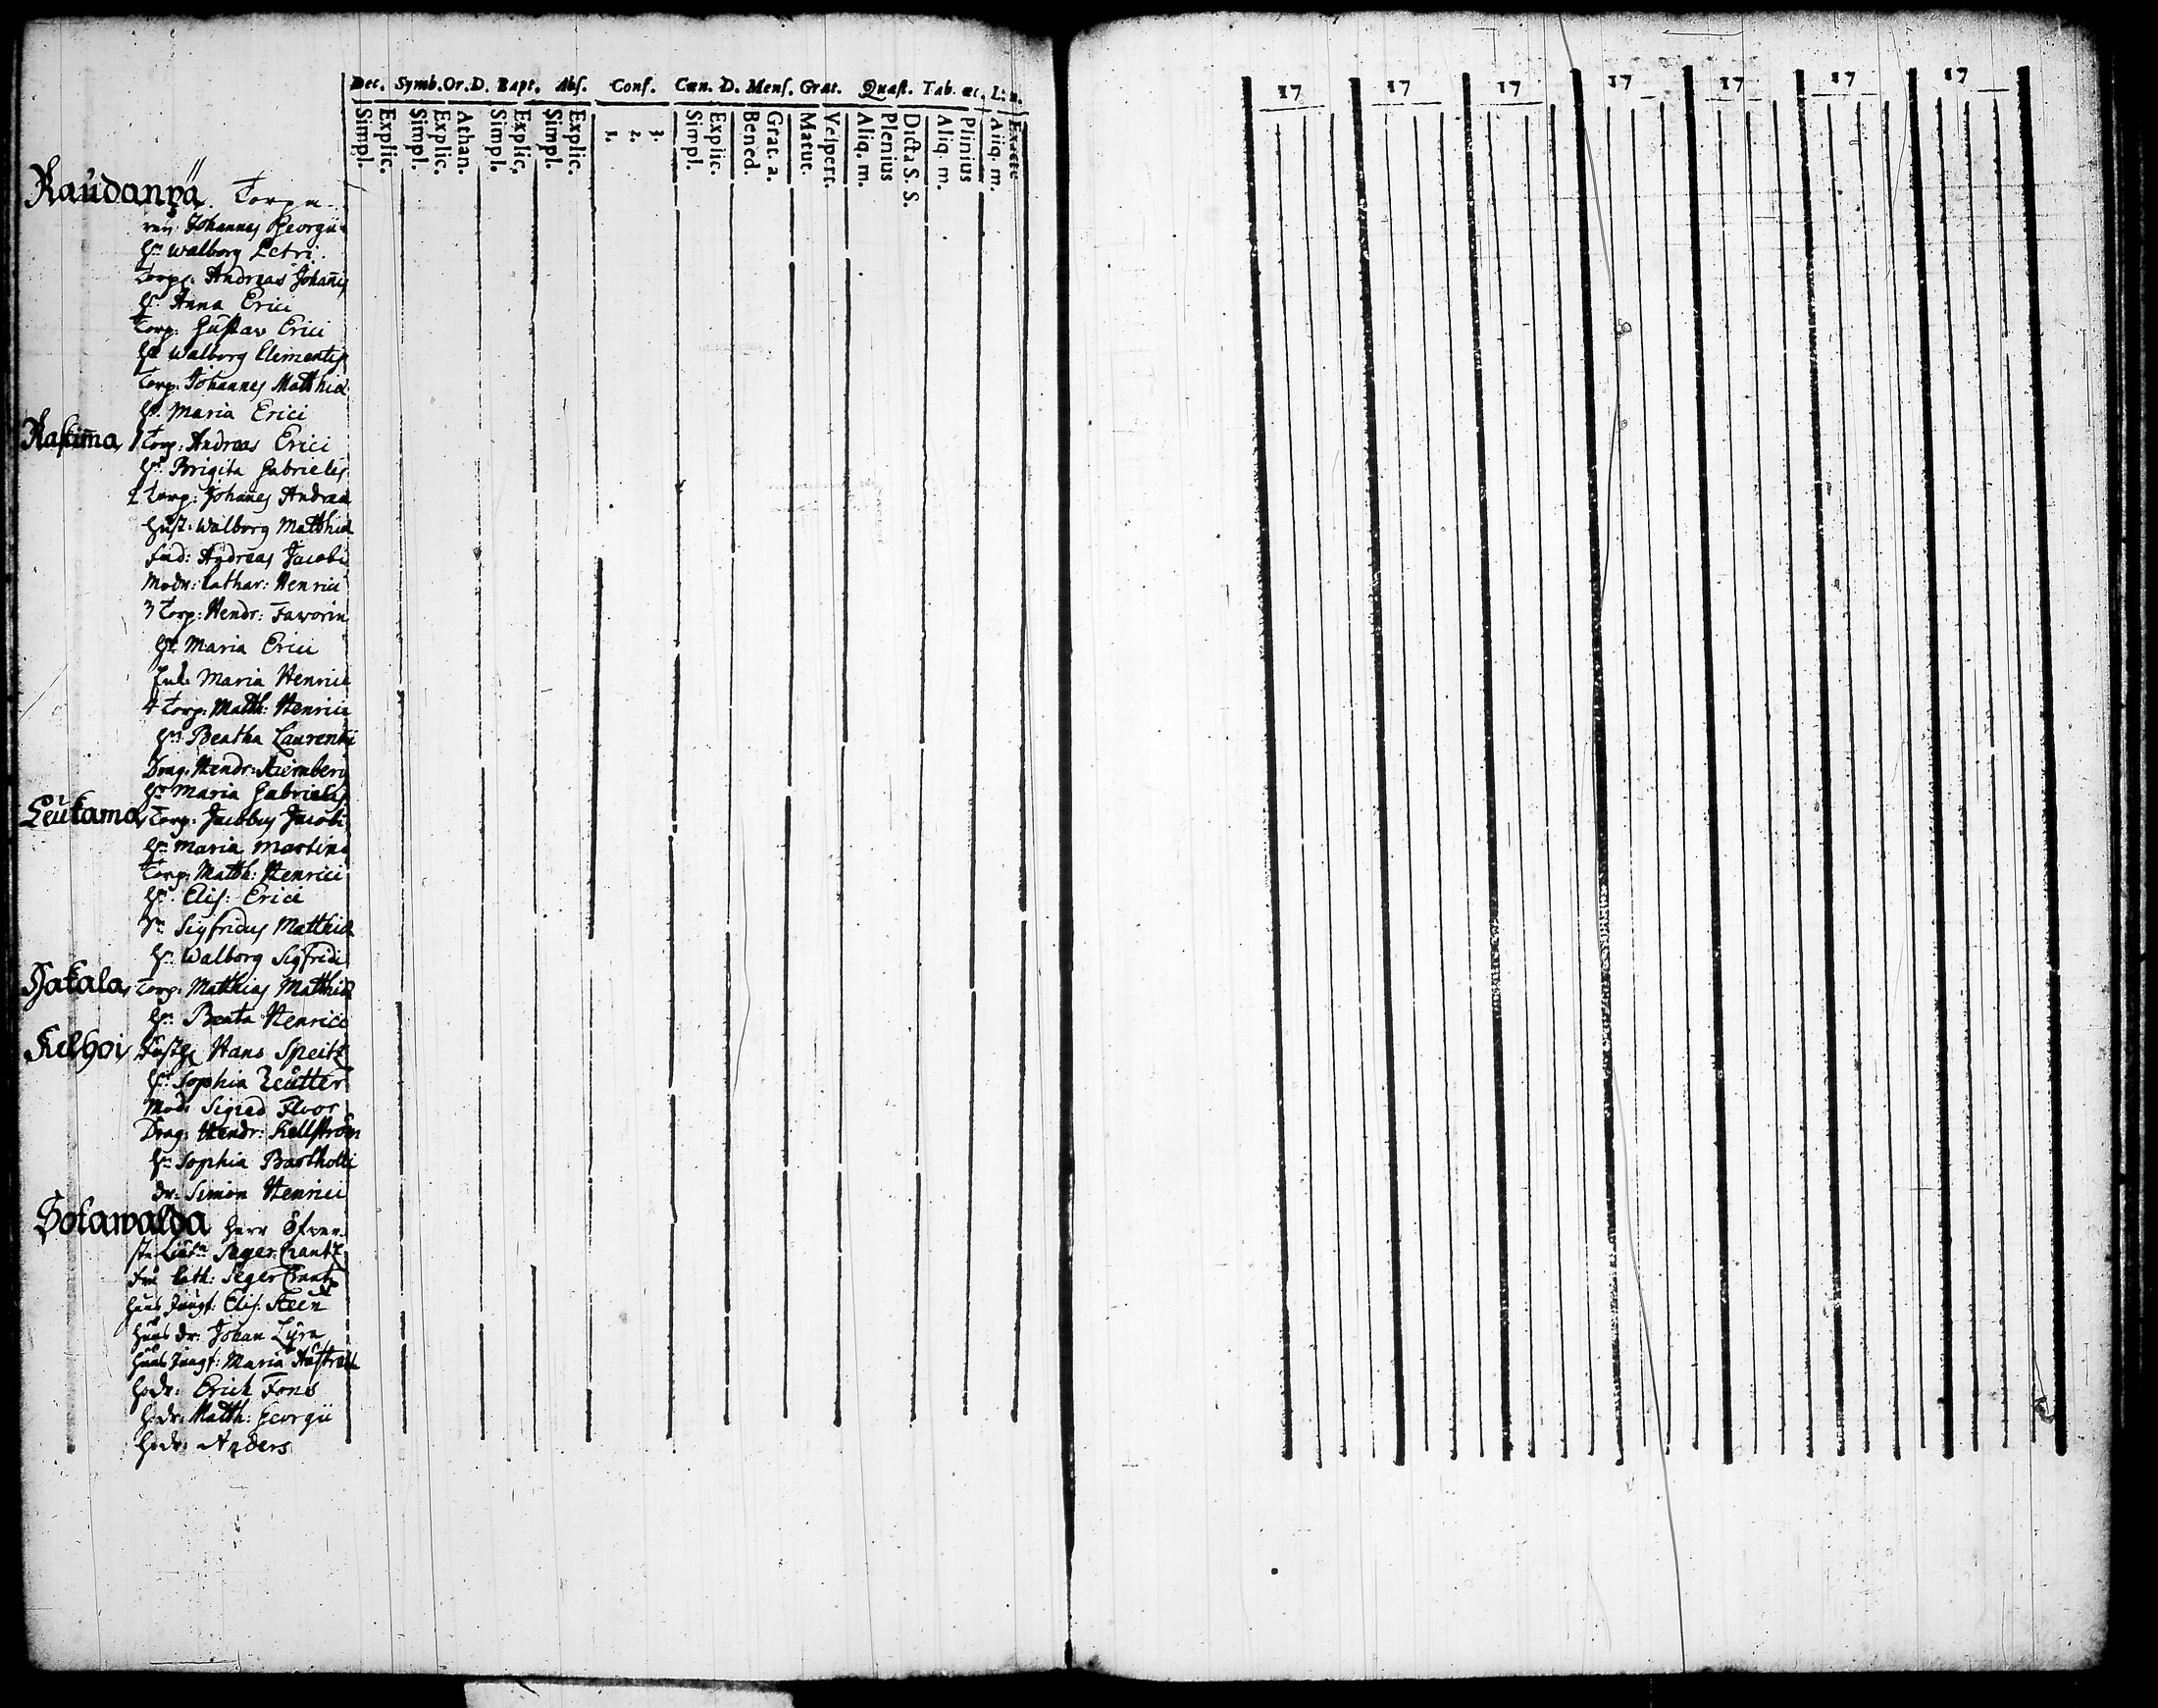 Dec. Symb. Or. D. Bapt. Abs. Conf. Cœn. D. Mens. Grat. Quæst. Tab. œc. L. n.
Simpl. Explic. Simpl. Explic. Athan. Simpl. Explic. Simpl. Explic. 1. 2. 3. Simpl. Explic. Bened. Grat. a. Matut. Vespert. Aliq. m. Plenius Dicta S. S. Aliq. m. Plinius Aliq. m. Exacte
17 17 17 17 17 17 17
Raudanpä. Torpa-
ren Johannes Georgii
Hu Walborg Petri.
Torp: Andreas Johanis
Hu Anna Erici
Torp: Gustav Erici
Hu Walborg Clementis
Torp: Johannes Matthiæ
Hu Maria Erici
1 Torp: Andreas Erici
Hu Brigita Gabrielis
2 Torp: Johanes Andreæ
Hust: Walborg Matthiæ
Andreas Jacobi
Modr: Cathar: Henrici
3 Torp: Hendr: Favorin
Hu Maria Erici
Maria Henrici
4 Torp: Matth: Henrici
Hu Beatha Laurentii
Drag: Hendr: Stiernberg
Hu Maria Gabrielis
Leukama Torp: Jacobus Jacobi
Hu Maria Martini
Torp: Matth: Henrici
Hu Elis: Erici
Sn Sigfridus Matthiæ
Hu Walborg Sigfridi
Torp: Matthias Matthiæ
Hu Beata Henrici
Kelhoi Hans Speitz
Hu Sophia Reutter
Mod: Sigred Floor
Drag: Hendr: Kellström
Hu Sophia Bartholli
dr: Simon Henrici
Sotawalda Herr Öfwer-
ste Lieutn Seger Crantz
Fru Cath: Seger Crantz
Huus Jungf: Elis: Steen
Huus dr: Johan Lyra
Huus Jungf: Maria
H: dr: Erich Fonis
H: dr: Matth: Georgii
H: dr: Anders